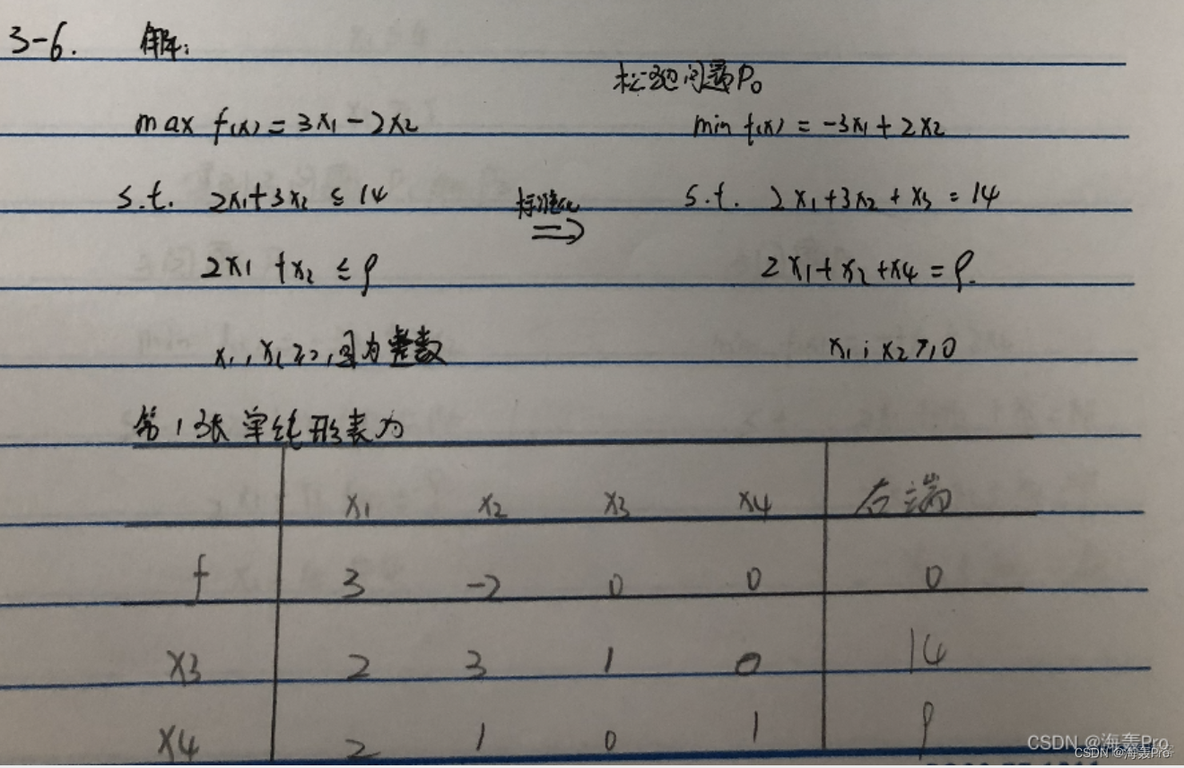 3-6. 解:
松弛问题P₀
max f(x) = 3x₁ - 2x₂ min f(x) = -3x₁ + 2x₂
s.t. 2x₁+3x₂ ≤ 14 标准化 ⇒ s.t. 2x₁+3x₂+x₃ = 14
2x₁+x₂ ≤ 9 2x₁+x₂+x₄ = 9.
x₁, x₂ ≥ 0, 且为整数 x₁, x₂ ≥ 0
第1张单纯形表为
x₁ x₂ x₃ x₄ 右端
f 3 -2 0 0 0
x₃ 2 3 1 0 14
x₄ 2 1 0 1 9
CSDN @海轰Pro
CSDN @海轰Pro